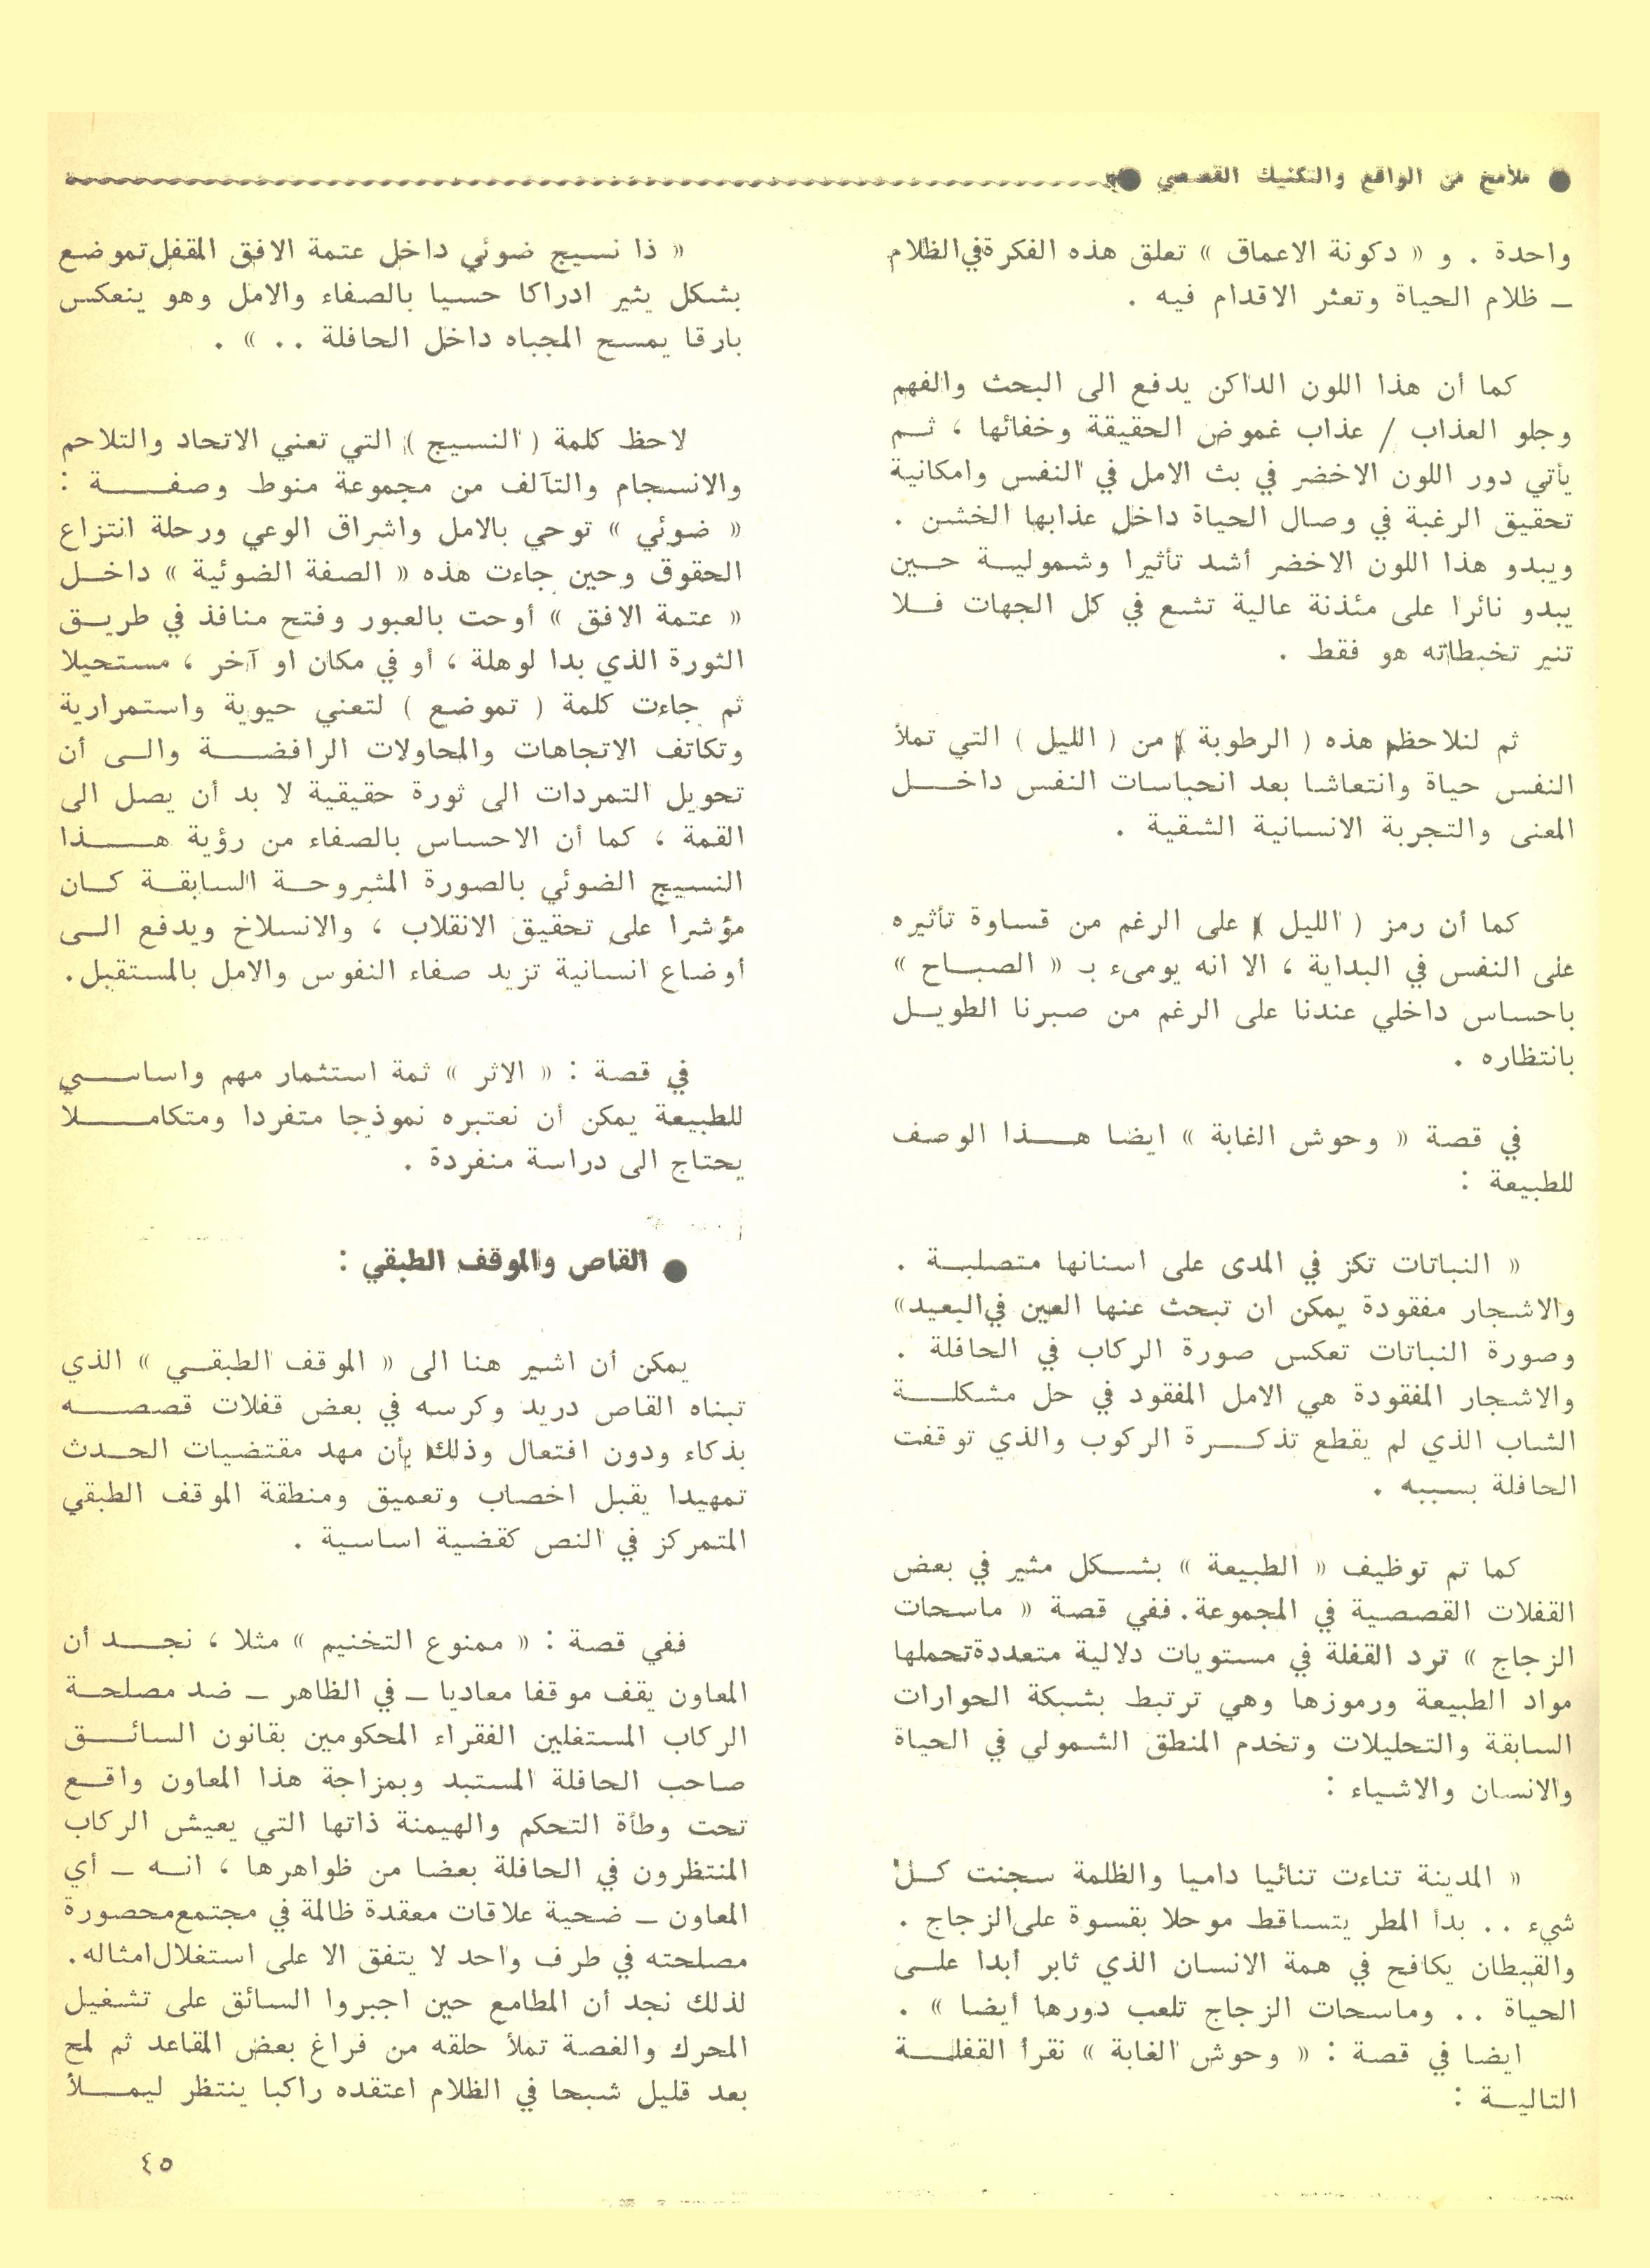 ● ملامح من الواقع والتكنيك القصصي ●
واحدة . و « دكونة الاعماق » تعلق هذه الفكرة في الظلام
ـ ظلام الحياة وتعثر الاقدام فيه .
كما أن هذا اللون الداكن يدفع الى البحث والفهم
وجلو العذاب / عذاب غموض الحقيقة وخفائها ، ثــم
يأتي دور اللون الاخضر في بث الامل في النفس وامكانية
تحقيق الرغبة في وصال الحياة داخل عذابها الخشن .
ويبدو هذا اللون الاخضر أشد تأثيرا وشموليــة حــين
يبدو نائرا على مئذنة عالية تشع في كل الجهات فــلا
تنير تخبطاته هو فقط .
ثم لنلاحظ هذه ( الرطوبة ) من ( الليل ) التي تملأ
النفس حياة وانتعاشا بعد انحباسات النفس داخــل
المعنى والتجربة الانسانية الشقية .
كما أن رمز ( الليل ) على الرغم من قساوة تأثيره
على النفس في البداية ، الا انه يومىء بـ « الصبــاح »
باحساس داخلي عندنا على الرغم من صبرنا الطويــل
بانتظاره .
في قصة « وحوش الغابة » ايضا هــذا الوصف
للطبيعة :
« النباتات تكز في المدى على اسنانها متصلبــة .
والاشجار مفقودة يمكن ان تبحث عنها العين في البعيد»
وصورة النباتات تعكس صورة الركاب في الحافلة .
والاشجار المفقودة هي الامل المفقود في حل مشكلــة
الشاب الذي لم يقطع تذكــرة الركوب والذي توقفت
الحافلة بسببه .
كما تم توظيف « الطبيعة » بشــكل مثير في بعض
القفلات القصصية في المجموعة. ففي قصة « ماسحات
الزجاج » ترد القفلة في مستويات دلالية متعددة تحملها
مواد الطبيعة ورموزها وهي ترتبط بشبكة الحوارات
السابقة والتحليلات وتخدم المنطق الشمولي في الحياة
والانسان والاشياء :
« المدينة تناءت تنائيا داميا والظلمة سجنت كــل
شيء .. بدأ المطر يتساقط موحلا بقسوة على الزجاج .
والقبطان يكافح في همة الانسان الذي ثابر أبدا علــى
الحياة .. وماسحات الزجاج تلعب دورها أيضا » .
ايضا في قصة : « وحوش الغابة » نقرأ القفلــة
التاليــة :
« ذا نسيج ضوئي داخل عتمة الافق المقفل تموضع
بشكل يثير ادراكا حسيا بالصفاء والامل وهو ينعكس
بارقا يمسح المجباه داخل الحافلة .. » .
لاحظ كلمة ( النسيج ) التي تعني الاتحاد والتلاحم
والانسجام والتآلف من مجموعة منوط وصفــة :
« ضوئي » توحي بالامل واشراق الوعي ورحلة انتزاع
الحقوق وحين جاءت هذه « الصفة الضوئية » داخــل
« عتمة الافق » أوحت بالعبور وفتح منافذ في طريــق
الثورة الذي بدا لوهلة ، أو في مكان او آخر ، مستحيلا
ثم جاءت كلمة ( تموضع ) لتعني حيوية واستمرارية
وتكاتف الاتجاهات والمحاولات الرافضــة والــى أن
تحويل التمردات الى ثورة حقيقية لا بد أن يصل الى
القمة ، كما أن الاحساس بالصفاء من رؤية هــذا
النسيج الضوئي بالصورة المشروحــة السابقــة كــان
مؤشرا على تحقيق الانقلاب ، والانسلاخ ويدفع الــى
أوضاع انسانية تزيد صفاء النفوس والامل بالمستقبل.
في قصة : « الاثر » ثمة استثمار مهم واساســي
للطبيعة يمكن أن نعتبره نموذجا متفردا ومتكامــلا
يحتاج الى دراسة منفردة .
● القاص والموقف الطبقي :
يمكن أن اشير هنا الى « الموقف الطبقــي » الذي
تبناه القاص دريد وكرسه في بعض قفلات قصصــه
بذكاء ودون افتعال وذلك بأن مهد مقتضيات الحــدث
تمهيدا يقبل اخصاب وتعميق ومنطقة الموقف الطبقي
المتمركز في النص كقضية اساسية .
ففي قصة : « ممنوع التخنيم » مثلا ، نجــد أن
المعاون يقف موقفا معاديا ـ في الظاهر ـ ضد مصلحــة
الركاب المستغلين الفقراء المحكومين بقانون السائــق
صاحب الحافلة المستبد وبمزاجة هذا المعاون واقــع
تحت وطأة التحكم والهيمنة ذاتها التي يعيش الركاب
المنتظرون في الحافلة بعضا من ظواهرها ، انــه ـ أي
المعاون ـ ضحية علاقات معقدة ظالمة في مجتمع محصورة
مصلحته في طرف واحد لا يتفق الا على استغلال امثاله.
لذلك نجد أن المطامع حين اجبروا السائق على تشغيل
المحرك والغصة تملأ حلقه من فراغ بعض المقاعد ثم لمح
بعد قليل شبحا في الظلام اعتقده راكبا ينتظر ليمــلأ
٤٥